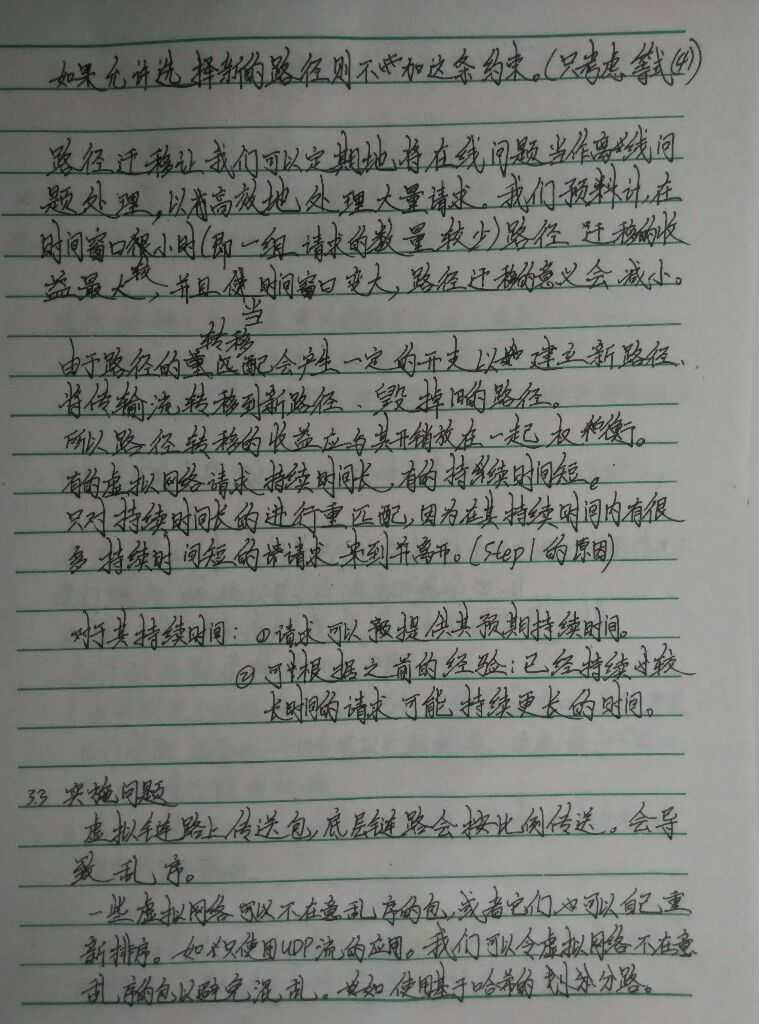 如果允许选择新的路径则不加这条约束。(只考虑等式(4))
路径迁移让我们可以定期地将在线问题当作离线问
题处理,以高效地处理大量请求。我们预计,在
时间窗口很小时(即一组请求的数量较少)路径迁移的收
益最大,并且当时间窗口变大,路径迁移的意义会减小。
由于路径的转移匹配会产生一定的开支以建立新路径、
将传输流转移到新路径、毁掉旧的路径。
所以路径转移的收益应与其开销放在一起权衡。
有的虚拟网络请求持续时间长,有的持续时间短。
只对持续时间长的进行重匹配,因为在其持续时间内有很
多持续时间短的请求来到并离开。(Step1的原因)
对于其持续时间:①请求可以提供其预期持续时间。
②可根据之前的经验:已经持续较
长时间的请求可能持续更长的时间。
3.3 实施问题
虚拟链路上传送包,底层链路会按比例传送。会导
致乱序。
一些虚拟网络可以不在意乱序的包,或者它们也可以自己重
新排序。如只使用UDP流的应用。我们可以令虚拟网络不在意
乱序的包以避免混乱。如使用基于哈希的划分分路。